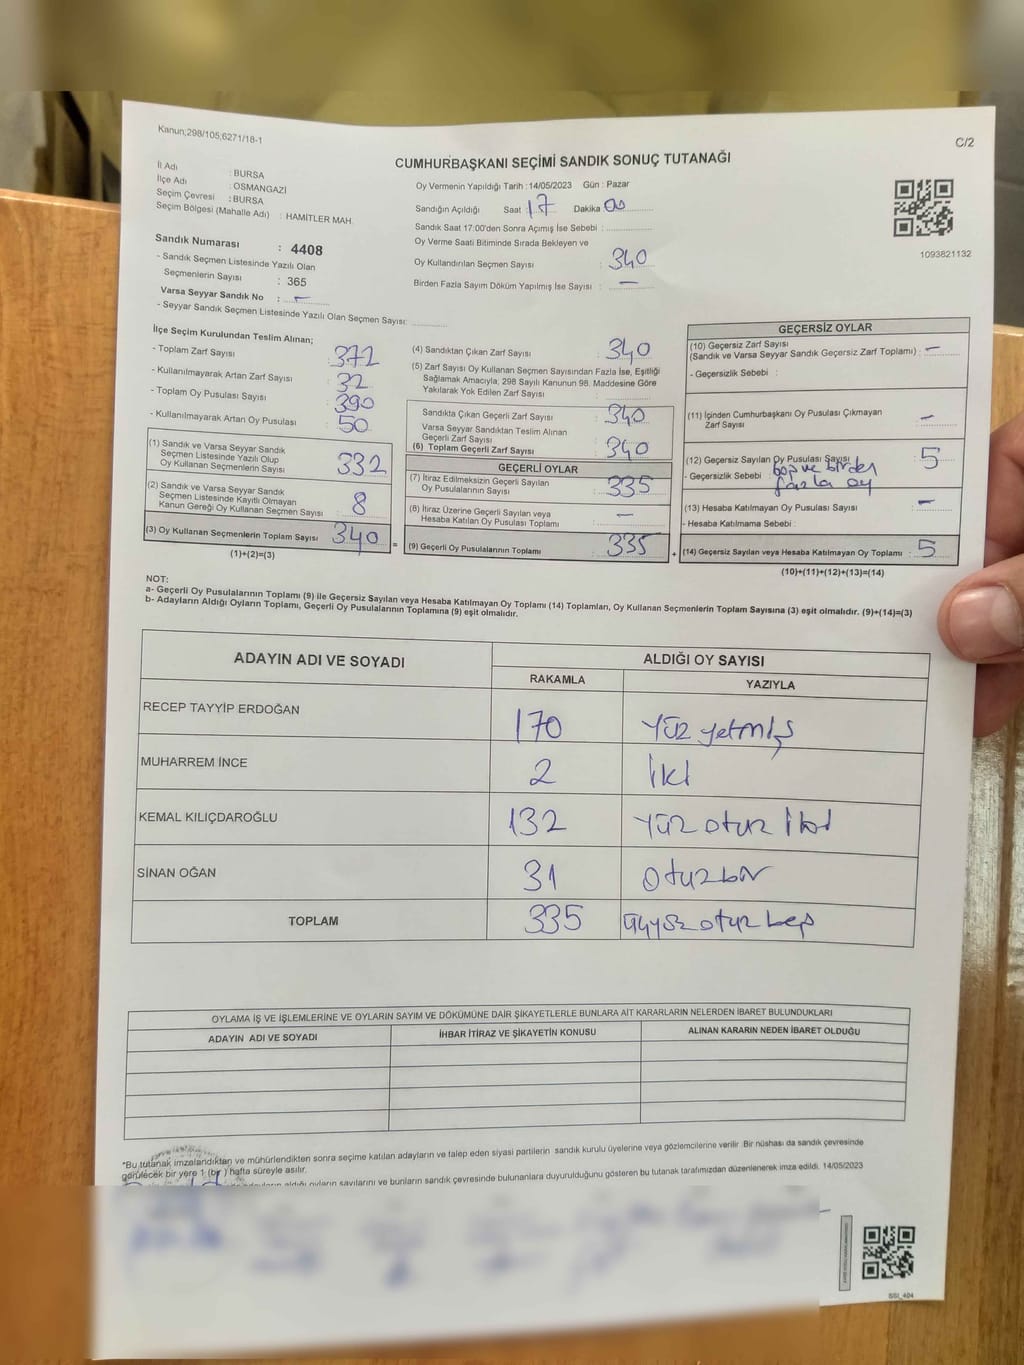 Kanun;298/105;6271/18-1
C/2
CUMHURBAŞKANI SEÇİMİ SANDIK SONUÇ TUTANAĞI
İl Adı : BURSA
İlçe Adı : OSMANGAZİ
Seçim Çevresi : BURSA
Seçim Bölgesi (Mahalle Adı) : HAMİTLER MAH.
Sandık Numarası : 4408
- Sandık Seçmen Listesinde Yazılı Olan
Seçmenlerin Sayısı : 365
Varsa Seyyar Sandık No : –
- Seyyar Sandık Seçmen Listesinde Yazılı Olan Seçmen Sayısı:
Oy Vermenin Yapıldığı Tarih : 14/05/2023 Gün : Pazar
Sandığın Açıldığı Saat : 17 Dakika : 00
Sandık Saat 17:00'den Sonra Açımış İse Sebebi :
Oy Verme Saati Bitiminde Sırada Bekleyen ve
Oy Kullandırılan Seçmen Sayısı : 340
Birden Fazla Sayım Döküm Yapılmış İse Sayısı : –
1093821132
İlçe Seçim Kurulundan Teslim Alınan;
- Toplam Zarf Sayısı : 372
- Kullanılmayarak Artan Zarf Sayısı : 32
- Toplam Oy Pusulası Sayısı : 390
- Kullanılmayarak Artan Oy Pusulası : 50
(1) Sandık ve Varsa Seyyar Sandık
Seçmen Listesinde Yazılı Olup
Oy Kullanan Seçmenlerin Sayısı : 332
(2) Sandık ve Varsa Seyyar Sandık
Seçmen Listesinde Kayıtlı Olmayan
Kanun Gereği Oy Kullanan Seçmen Sayısı : 8
(3) Oy Kullanan Seçmenlerin Toplam Sayısı : 340
(1)+(2)=(3)
=
(4) Sandıktan Çıkan Zarf Sayısı : 340
(5) Zarf Sayısı Oy Kullanan Seçmen Sayısından Fazla İse, Eşitliği
Sağlamak Amacıyla; 298 Sayılı Kanunun 98. Maddesine Göre
Yakılarak Yok Edilen Zarf Sayısı :
Sandıkta Çıkan Geçerli Zarf Sayısı : 340
Varsa Seyyar Sandıktan Teslim Alınan
Geçerli Zarf Sayısı :
(6) Toplam Geçerli Zarf Sayısı : 340
GEÇERLİ OYLAR
(7) İtiraz Edilmeksizin Geçerli Sayılan
Oy Pusulalarının Sayısı : 335
(8) İtiraz Üzerine Geçerli Sayılan veya
Hesaba Katılan Oy Pusulası Toplamı : –
(9) Geçerli Oy Pusulalarının Toplamı : 335
+
GEÇERSİZ OYLAR
(10) Geçersiz Zarf Sayısı
(Sandık ve Varsa Seyyar Sandık Geçersiz Zarf Toplamı) : –
- Geçersizlik Sebebi :
(11) İçinden Cumhurbaşkanı Oy Pusulası Çıkmayan
Zarf Sayısı : –
(12) Geçersiz Sayılan Oy Pusulası Sayısı : 5
- Geçersizlik Sebebi : boş ve birden
fazla oy
(13) Hesaba Katılmayan Oy Pusulası Sayısı : –
- Hesaba Katılmama Sebebi :
(14) Geçersiz Sayılan veya Hesaba Katılmayan Oy Toplamı : 5
(10)+(11)+(12)+(13)=(14)
NOT:
a- Geçerli Oy Pusulalarının Toplamı (9) ile Geçersiz Sayılan veya Hesaba Katılmayan Oy Toplamı (14) Toplamları, Oy Kullanan Seçmenlerin Toplam Sayısına (3) eşit olmalıdır. (9)+(14)=(3)
b- Adayların Aldığı Oyların Toplamı, Geçerli Oy Pusulalarının Toplamına (9) eşit olmalıdır.
ADAYIN ADI VE SOYADI
ALDIĞI OY SAYISI
RAKAMLA YAZIYLA
RECEP TAYYİP ERDOĞAN 170 Yüz yetmiş
MUHARREM İNCE 2 İki
KEMAL KILIÇDAROĞLU 132 Yüz otuz iki
SİNAN OĞAN 31 Otuzbir
TOPLAM 335 üçyüz otuz beş
OYLAMA İŞ VE İŞLEMLERİNE VE OYLARIN SAYIM VE DÖKÜMÜNE DAİR ŞİKAYETLERLE BUNLARA AİT KARARLARIN NELERDEN İBARET BULUNDUKLARI
ADAYIN ADI VE SOYADI İHBAR İTİRAZ VE ŞİKAYETİN KONUSU ALINAN KARARIN NEDEN İBARET OLDUĞU
*Bu tutanak imzalandıktan ve mühürlendikten sonra seçime katılan adayların ve talep eden siyasi partilerin sandık kurulu üyelerine veya gözlemcilerine verilir Bir nüshası da sandık çevresinde
görülecek bir yere 1 (bir) hafta süreyle asılır.
aldığı oyların sayılarını ve bunların sandık çevresinde bulunanlara duyurulduğunu gösteren bu tutanak tarafımızdan düzenlenerek imza edildi. 14/05/2023
SSI_404